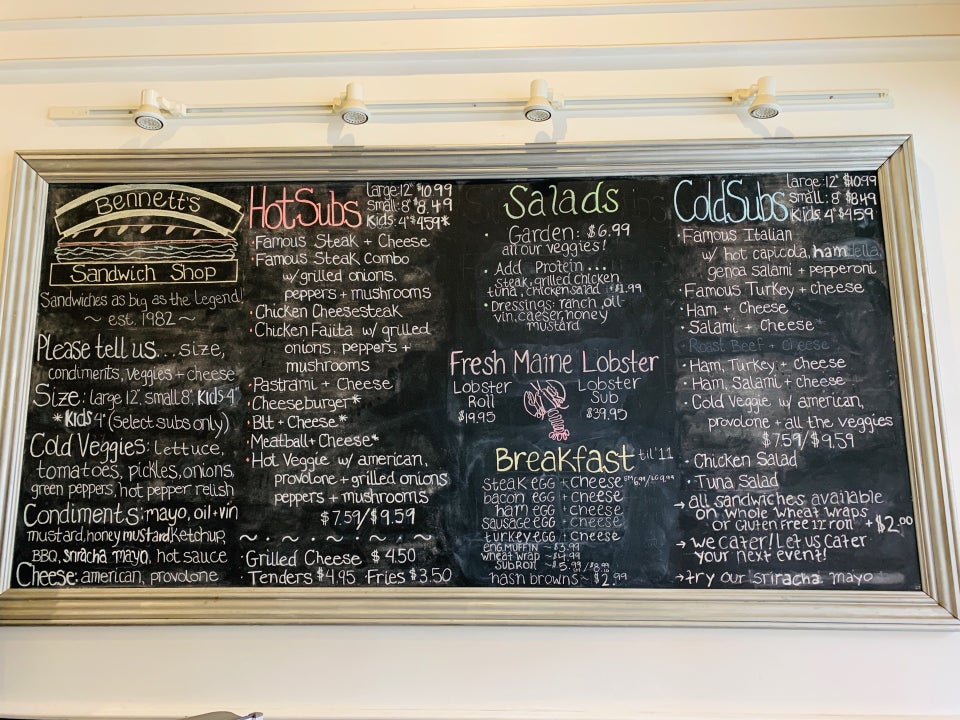 Bennett's
Sandwich Shop
Sandwiches as big as the Legend!
~ est. 1982 ~
Please tell us... size,
condiments, veggies + cheese
Size: large 12", small 8", Kids 4"
*Kids 4" (select subs only)
Cold Veggies: lettuce,
tomatoes, pickles, onions,
green peppers, hot pepper relish
Condiments: mayo, oil+vin
mustard, honey mustard, ketchup,
BBQ, sriracha mayo, hot sauce
Cheese: american, provolone
Hot Subs
large: 12" $10.99
small: 8" $8.49
Kids: 4" $4.59*
· Famous Steak + Cheese
· Famous Steak Combo
w/ grilled onions,
peppers + mushrooms
· Chicken Cheesesteak
· Chicken Fajita w/ grilled
onions, peppers +
mushrooms
· Pastrami + Cheese
· Cheeseburger*
· Blt + Cheese*
· Meatball + Cheese*
· Hot Veggie w/ american,
provolone + grilled onions
peppers + mushrooms
$7.59/$9.59
· Grilled Cheese $4.50
· Tenders $4.95 Fries $3.50
Salads
· Garden: $6.99
all our veggies!
· Add Protein...
steak, grilled chicken
tuna, chicken salad
· Dressings: ranch, oil-
vin, caeser, honey
mustard
Fresh Maine Lobster
Lobster
Roll
$19.95
Lobster
Sub
$39.95
Breakfast til' 11
steak egg + cheese
bacon egg + cheese
ham egg + cheese
sausage egg + cheese
turkey egg + cheese
eng. muffin ~ $3.99
wheat wrap ~ $4.99
sub roll ~ $5.99/$8.99
hash browns ~ $2.99
Cold Subs
large: 12" $10.99
small: 8" $8.49
Kids: 4" $4.59
· Famous Italian
w/ hot capicola, ham
genoa salami + pepperoni
· Famous Turkey + cheese
· Ham + Cheese
· Salami + Cheese
· Roast Beef + Cheese
· Ham, Turkey + Cheese
· Ham, Salami + cheese
· Cold Veggie w/ american,
provolone + all the veggies
$7.59/$9.59
· Chicken Salad
· Tuna Salad
→ all sandwiches available
on whole wheat wraps
or Gluten Free 12" roll + $2.00
→ we cater / Let us cater
your next event!
→ try our sriracha mayo